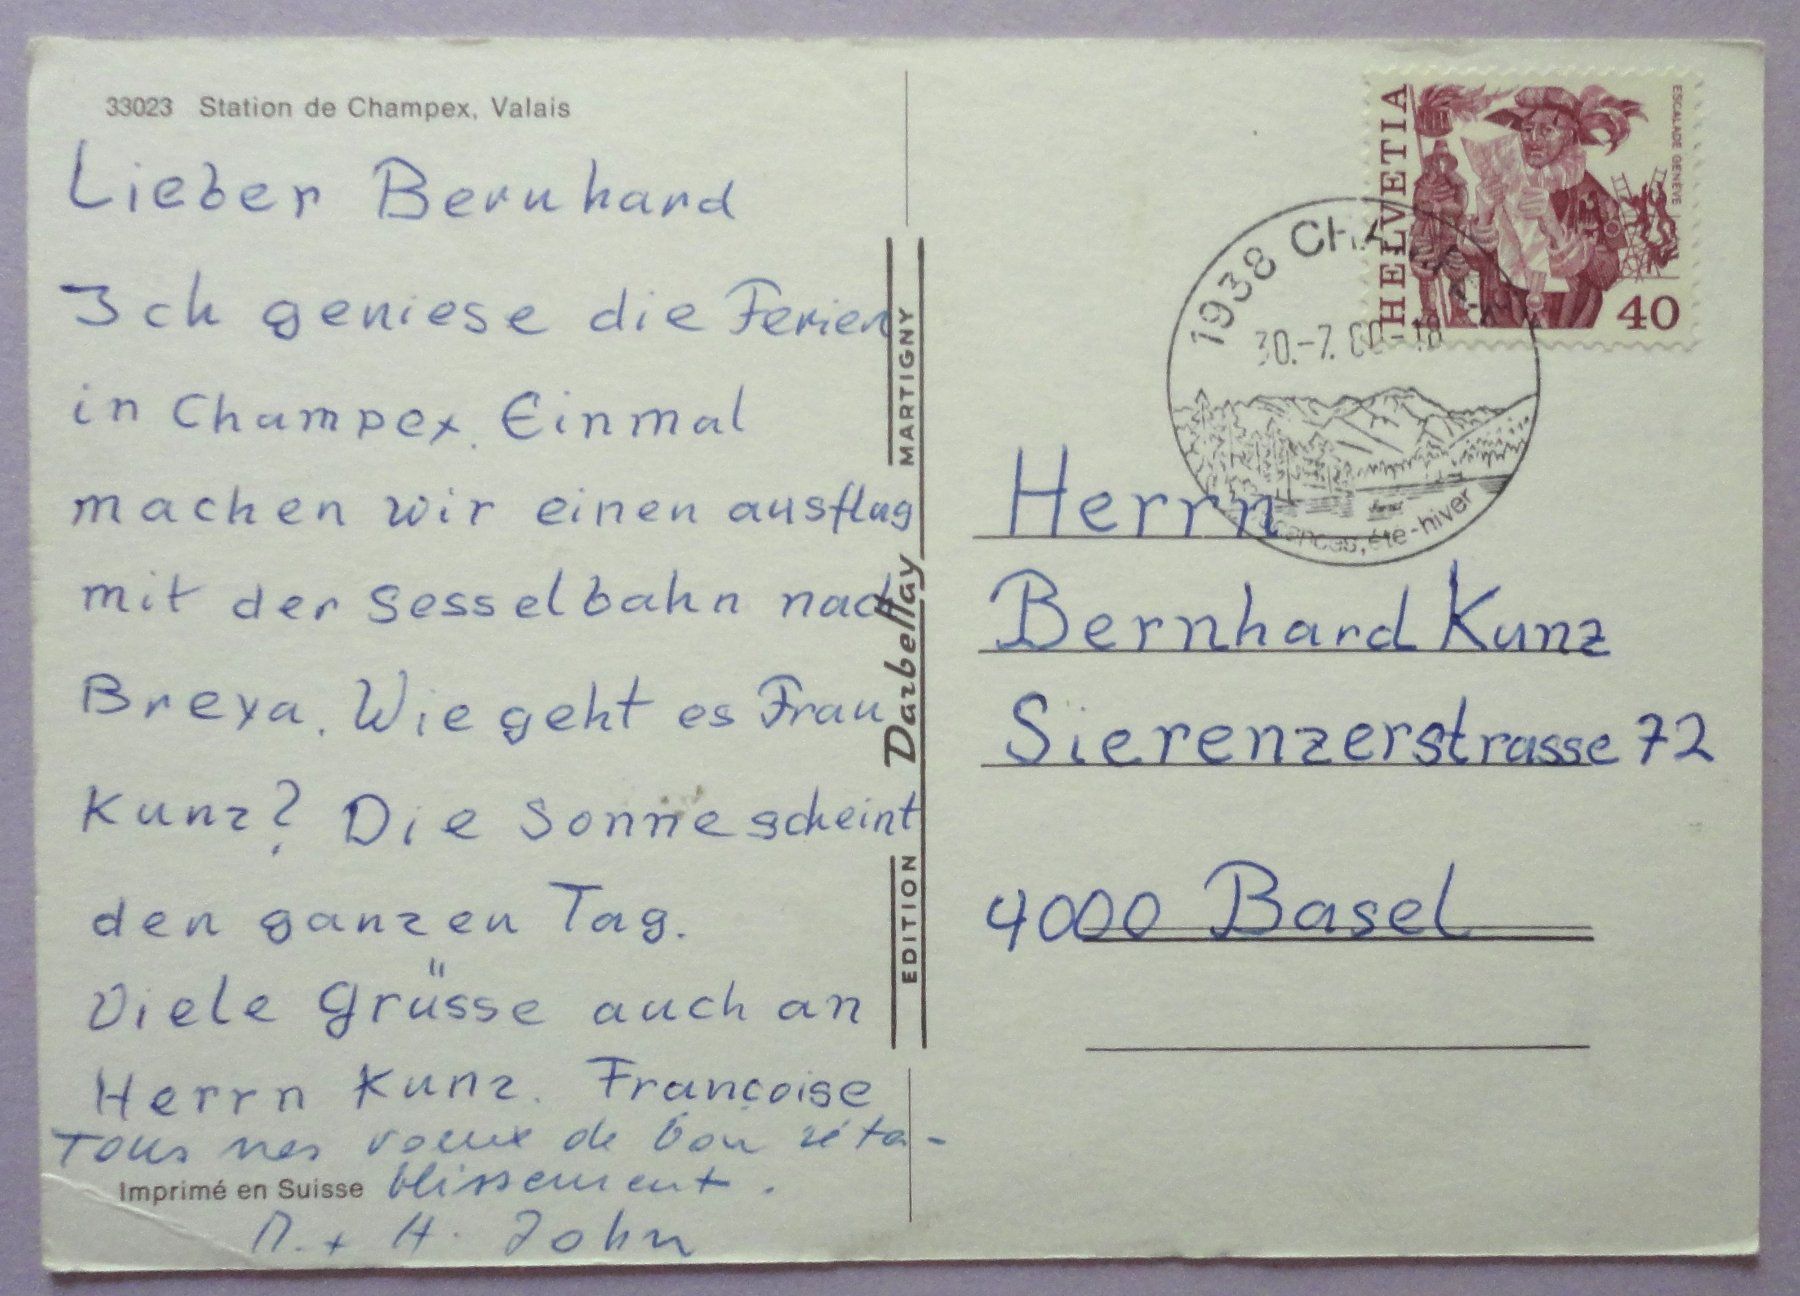 33023 Station de Champex, Valais
Lieber Bernhard
Ich geniese die Ferien
in Champex. Einmal
machen wir einen ausflug
mit der Sesselbahn nach
Breya. Wie geht es Frau
Kunz? Die Sonne scheint
den ganzen Tag.
Viele Grüsse auch an
Herrn Kunz. Françoise
Tous nos voeux de bon réta-
blissement.
Imprimé en Suisse
M. + H. John
EDITION Darbellay MARTIGNY
HELVETIA
ESCALADE GENÈVE
40
1938 CHAMPEX
30.-7.80-18
vacances, été-hiver
Herrn
Bernhard Kunz
Sierenzerstrasse 72
4000 Basel